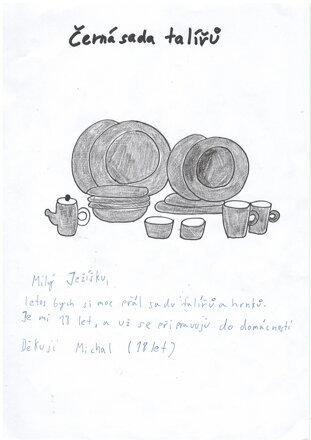 Černá sada talířů
Milý Ježíšku,
letos bych si moc přál sadu talířů a hrnků.
Je mi 18 let, a už se připravuji do domácnosti
Děkuji Michal (18 let)